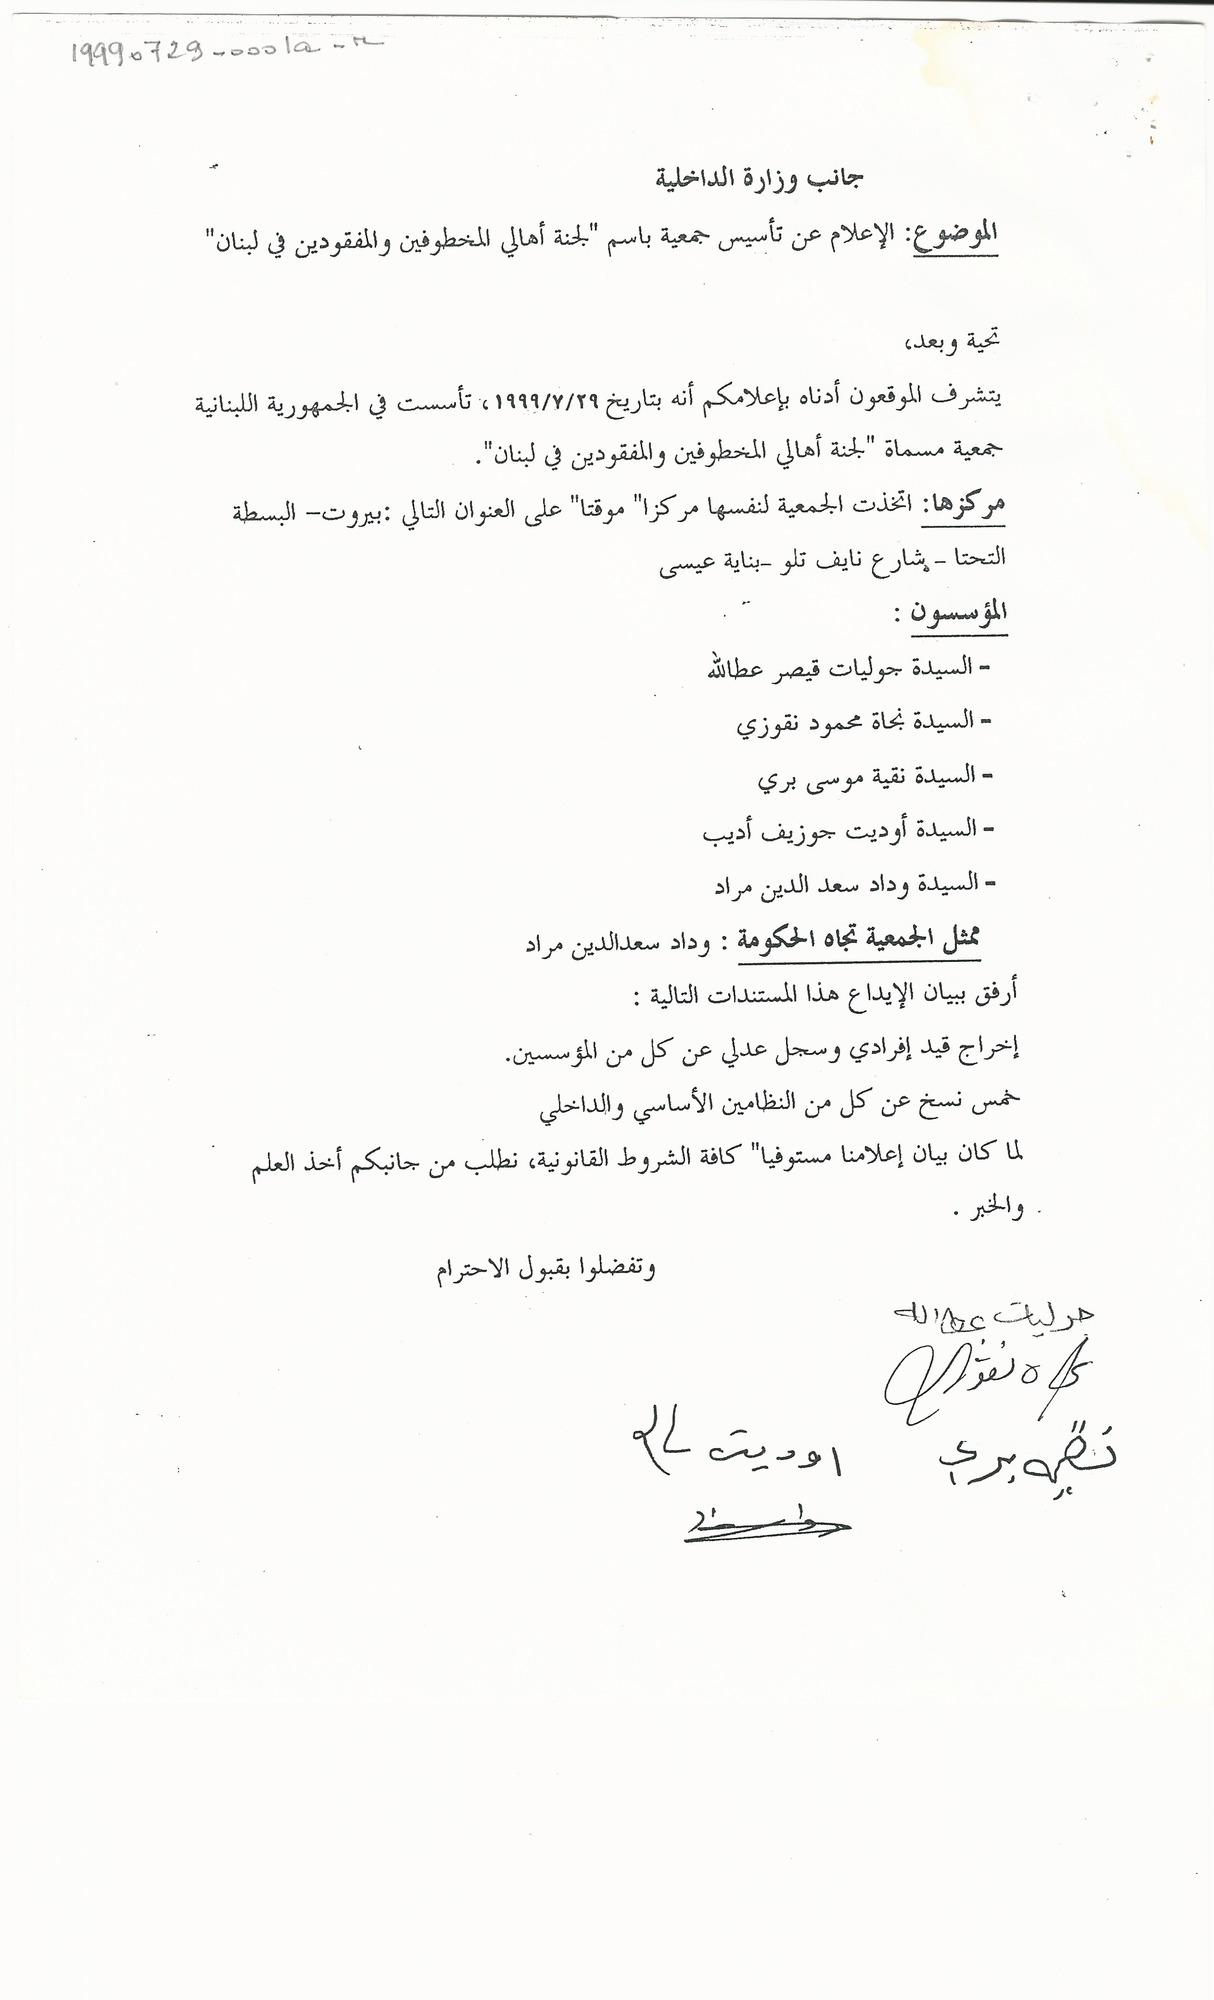 19990729-0001a-r
جانب وزارة الداخلية
الموضوع: الإعلام عن تأسيس جمعية باسم "لجنة أهالي المخطوفين والمفقودين في لبنان"
تحية وبعد،
يتشرف الموقعون أدناه بإعلامكم أنه بتاريخ ١٩٩٩/٧/٢٩، تأسست في الجمهورية اللبنانية
جمعية مسماة "لجنة أهالي المخطوفين والمفقودين في لبنان".
مركزها: اتخذت الجمعية لنفسها مركزا" موقتا" على العنوان التالي :بيروت– البسطة
التحتا – شارع نايف تلو –بناية عيسى
المؤسسون :
- السيدة جوليات قيصر عطالله
- السيدة نجاة محمود نقوزي
- السيدة نقية موسى بري
- السيدة أوديت جوزيف أديب
- السيدة وداد سعد الدين مراد
ممثل الجمعية تجاه الحكومة : وداد سعدالدين مراد
أرفق ببيان الإيداع هذا المستندات التالية :
إخراج قيد إفرادي وسجل عدلي عن كل من المؤسسين.
خمس نسخ عن كل من النظامين الأساسي والداخلي
لما كان بيان إعلامنا مستوفيا" كافة الشروط القانونية، نطلب من جانبكم أخذ العلم
والخبر .
وتفضلوا بقبول الاحترام
جوليات عطالله
نقية بري
اوديت